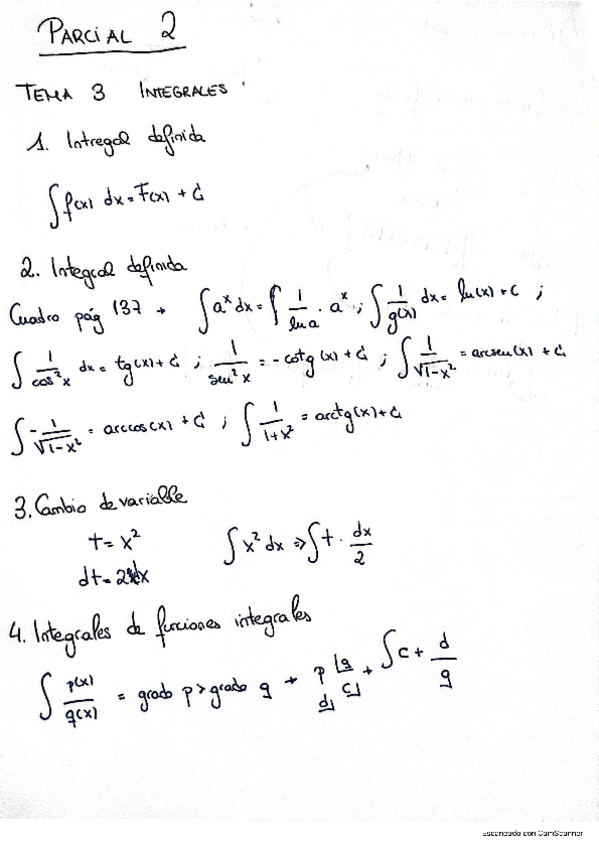 PARCIAL 2
TEMA 3 INTEGRALES
1. Intregal definida
∫f(x) dx = F(x) + C
2. Integral definida
Cuadro pág 137 → ∫aˣ dx = ∫ 1/ln a · aˣ ; ∫ 1/g(x) dx = ln(x) + C ;
∫ 1/cos²x dx = tg(x) + C ; 1/sen²x = -cotg(x) + C ; ∫ 1/√(1-x²) = arcsen(x) + C
∫ -1/√(1-x²) = arccos(x) + C ; ∫ 1/(1+x²) = arctg(x) + C
3. Cambio de variable
t = x² ∫x² dx => ∫t · dx/2
dt = 2 dx
4. Integrales de funciones integrales
∫ p(x)/q(x) = grado p > grado q → p |q d c → ∫c + d/q
Escaneado con CamScanner